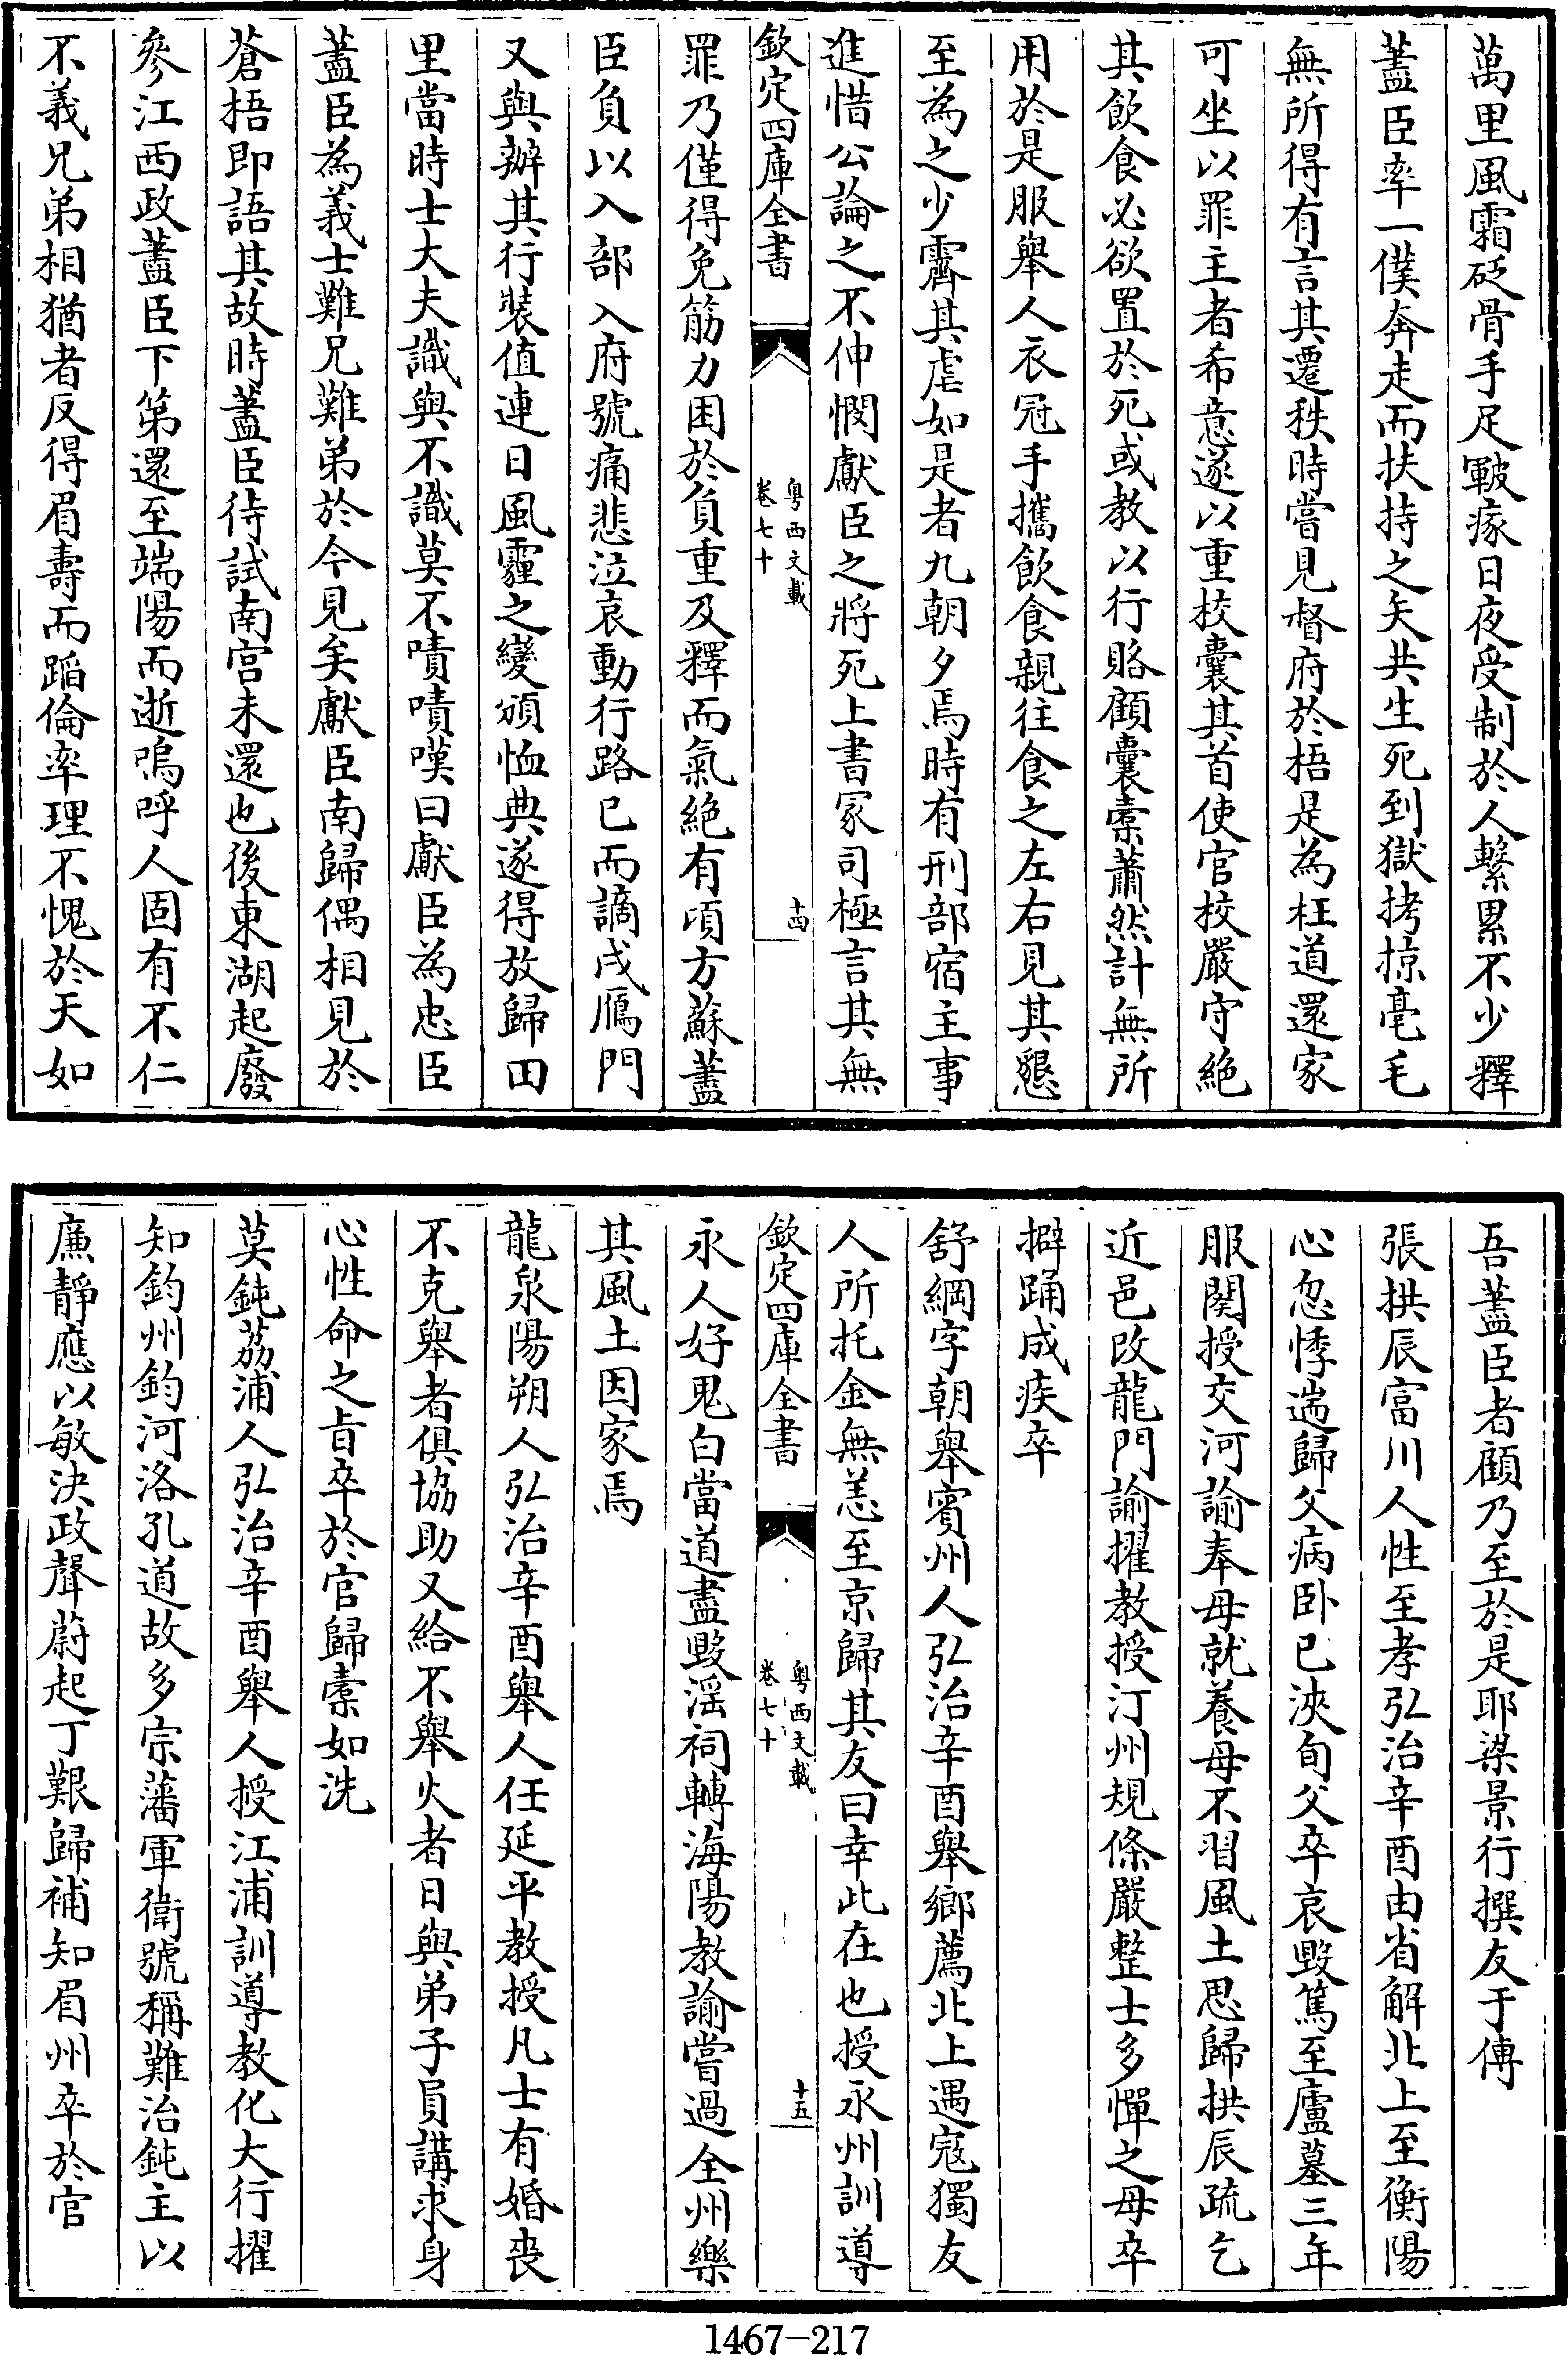 萬里風霜砭骨手足皸瘃日夜受制於人繫累不少釋
藎臣率一僕奔走而扶持之矢共生死到獄拷掠毫毛
無所得有言其遷秩時嘗見督府於梧是為枉道還家
可坐以罪主者希意遂以重校囊其首使官校嚴守絶
其飲食必欲置於死或教以行賂顧囊橐蕭然計無所
用於是服舉人衣冠手攜飲食親往食之左右見其懇
至為之少霽其虐如是者九朝夕焉時有刑部宿主事
進惜公論之不伸憫獻臣之將死上書冢司極言其無
欽定四庫全書
粤西文載
卷七十
十四
罪乃僅得免筋力困於負重及釋而氣絶有頃方蘇藎
臣負以入部入府號痛悲泣哀動行路已而謫戍鴈門
又與辦其行裝值連日風霾之變頒恤典遂得放歸田
里當時士大夫識與不識莫不嘖嘖嘆曰獻臣為忠臣
藎臣為義士難兄難弟於今見矣獻臣南歸偶相見於
蒼梧即語其故時藎臣待試南宮未還也後東湖起廢
參江西政藎臣下第還至端陽而逝嗚呼人固有不仁
不義兄弟相猶者反得眉壽而蹈倫率理不愧於天如
吾藎臣者顧乃至於是耶梁景行撰友于傳
張拱辰富川人性至孝弘治辛酉由省解北上至衡陽
心忽悸遄歸父病卧已浹旬父卒哀毁篤至廬墓三年
服闋授交河諭奉母就養母不習風土思歸拱辰疏乞
近邑改龍門諭擢教授汀州規條嚴整士多憚之母卒
擗踊成疾卒
舒綱字朝舉賓州人弘治辛酉舉鄉薦北上遇寇獨友
人所托金無恙至京歸其友曰幸此在也授永州訓導
欽定四庫全書
粤西文載
卷七十
十五
永人好鬼白當道盡毁滛祠轉海陽教諭嘗過全州樂
其風土因家焉
龍泉陽朔人弘治辛酉舉人任延平教授凡士有婚喪
不克舉者俱協助又給不舉火者日與弟子員講求身
心性命之㫖卒於官歸橐如洗
莫鈍荔浦人弘治辛酉舉人授江浦訓導教化大行擢
知鈞州鈞河洛孔道故多宗藩軍衛號稱難治鈍主以
廉靜應以敏決政聲蔚起丁艱歸補知眉州卒於官
1467-217